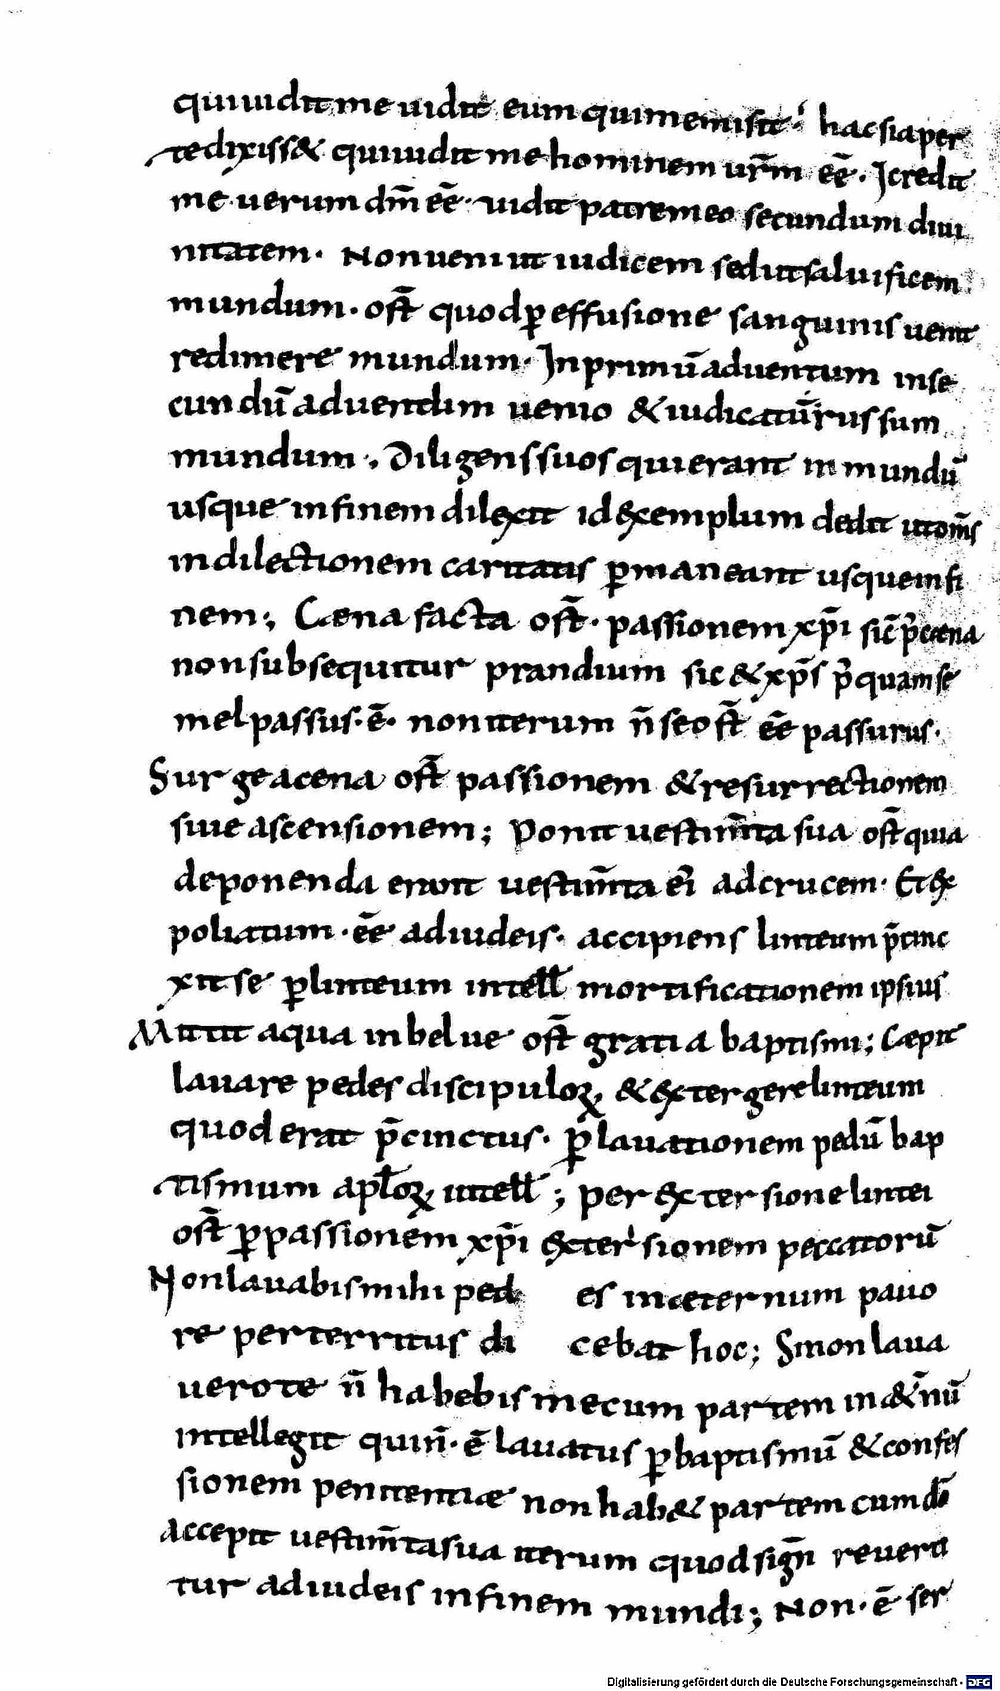 qui uidit me uidit eum qui me misit; hac si aper
te dixiss& qui uidit me hominem ur̄m eē. Icredit
me uerum dm̄ eē. uidit patrem eo secundum diui
nitatem. Non ueni ut iudicem sed ut saluificem
mundum. ost̄ quod ꝑ effusione sanguinis uenit
redimere mundum. In primū aduentum in se
cundū aduentum uenio & iudicaturus sum
mundum. Diligens suos qui erant in mundū
usque in finem dilexit id exemplum dedit ut om̄s
in dilectionem caritatis ꝑmaneant usque in fi
nem; Caena facta ost̄. passionem xp̄i sic̄ p̄ caena
non subsequitur prandium sic & xp̄s p̄quam se
mel passus. ē. non iterum n̄ se ost̄ eē passurus.
Surge a cena ost̄ passionem & resurrectionem
siue ascensionem; Ponit uestim̄ta sua ost̄ quia
deponenda erunt uestim̄ta ei ad crucem. Et ex
poliatum. eē ad iudeis. accipiens linteum p̄cinc
xit se ꝑ linteum intell̄ mortificationem ipsius
Mittit aqua in belue ost̄ gratia baptismi; Caepit
lauare pedes discipuloꝝ & extergere linteum
quod erat p̄cinctus. ꝑ lauationem pedū bap
tismum apl̄oꝝ intell̄; per extersione lintei
ost̄ ꝑ passionem xp̄i extersionem peccatorū
Non lauabis mihi pedes in aeternum pauo
re perterritus dicebat hoc; Si non laua
uero te n̄ habebis mecum partem in & n̄ū
intellegit qui n̄. ē lauatus ꝑ baptismū & confes
sionem penitentiae non hab& partem cum dō
Accepit uestim̄ta sua iterum quod sign̄ reuerti
tur ad iudeis in finem mundi; Non. ē ser
Digitalisierung gefördert durch die Deutsche Forschungsgemeinschaft - DFG